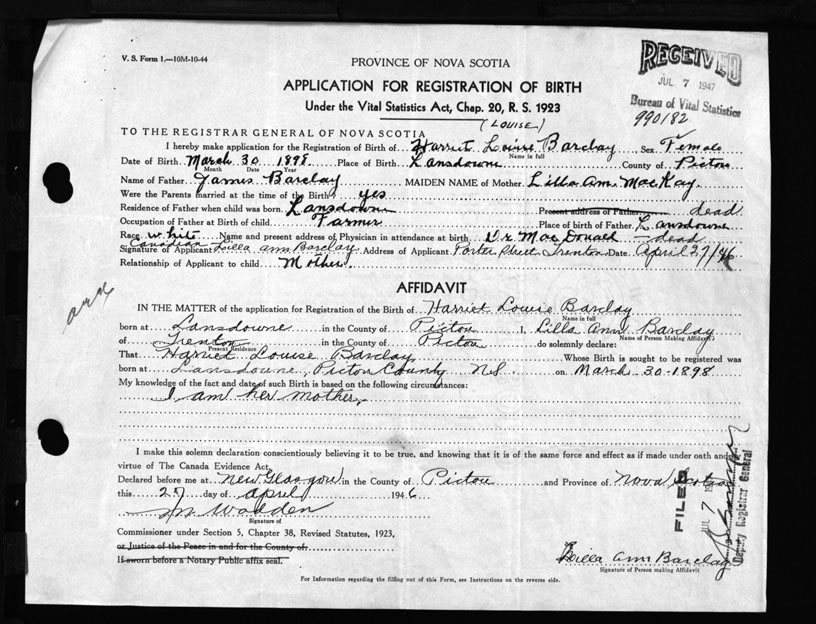 V. S. Form 1.—10M-10-44
PROVINCE OF NOVA SCOTIA
RECEIVED
JUL 7 1947
Bureau of Vital Statistics
990182
APPLICATION FOR REGISTRATION OF BIRTH
Under the Vital Statistics Act, Chap. 20, R. S. 1923
(LOUISE)
TO THE REGISTRAR GENERAL OF NOVA SCOTIA
I hereby make application for the Registration of Birth of Harriet Louise Barclay Sex Female
Name in full
Date of Birth March 30 1898 Place of Birth Lansdowne County of Pictou
Month Date Year
Name of Father James Barclay MAIDEN NAME of Mother Lilla Ann MacKay.
Were the Parents married at the time of the Birth? yes
Residence of Father when child was born Lansdowne Present address of Father dead
Occupation of Father at Birth of child Farmer Place of birth of Father Lansdowne
Race white Name and present address of Physician in attendance at birth Dr. MacDonald—dead
Canadian
Signature of Applicant Leilla Ann Barclay Address of Applicant Porter Street Trenton Date April 27/46
Relationship of Applicant to child Mother.
AFFIDAVIT
IN THE MATTER of the application for Registration of the Birth of Harriet Louise Barclay
Name in full
born at Lansdowne in the County of Pictou I, Lilla Ann Barclay
Name of Person Making Affidavit
of Trenton in the County of Pictou do solemnly declare:
Present Residence
That Harriet Louise Barclay Whose Birth is sought to be registered was
born at Lansdowne, Pictou County N.S. on March-30-1898
My knowledge of the fact and date of such Birth is based on the following circumstances:
I am her mother.
I make this solemn declaration conscientiously believing it to be true, and knowing that it is of the same force and effect as if made under oath and
virtue of The Canada Evidence Act.
Declared before me at New Glasgow in the County of Pictou and Province of Nova Scotia
this 27 day of April 1946
M Wadden
Signature of
Commissioner under Section 5, Chapter 38, Revised Statutes, 1923,
or Justice of the Peace in and for the County of
If sworn before a Notary Public affix seal.
Leilla Ann Barclay
Signature of Person making Affidavit
For Information regarding the filling out of this Form, see Instructions on the reverse side.
FILED
JUL 7
Deputy Registrar General